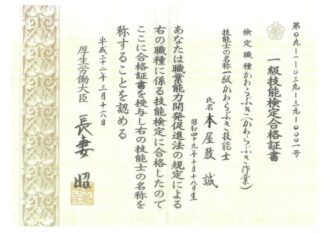 第〇九-一-〇二九-三九-〇〇〇一号
一級技能検定合格証書
検定職種かわらぶき(かわらぶき作業)
技能士の名称一級かわらぶき技能士
氏名 本屋敷 誠
昭和四十九年十月十八日生
あなたは職業能力開発促進法の規定による
右の職種に係る技能検定に合格したので
ここに合格証書を授与し右の技能士の名称を
称することを認める
平成二十二年三月十六日
厚生労働大臣 長妻 昭